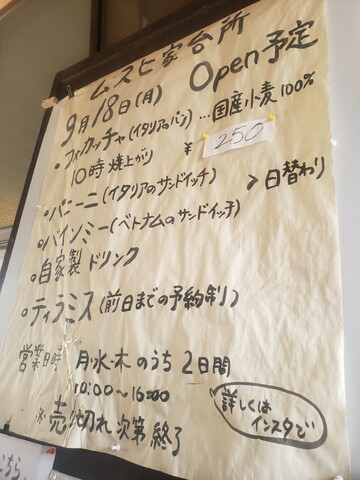 ムスヒ家台所
9月18日(月) Open予定
・フォカッチャ(イタリアのパン)…国産小麦100%
10時焼上がり ¥250
・パニーニ(イタリアのサンドイッチ)
>日替わり
・バインミー(ベトナムのサンドイッチ)
・自家製ドリンク
・ティラミス(前日までの予約制)
営業日時 月・水・木のうち2日間
10:00〜16:00
※売り切れ次第終了
詳しくは
インスタで
こちら